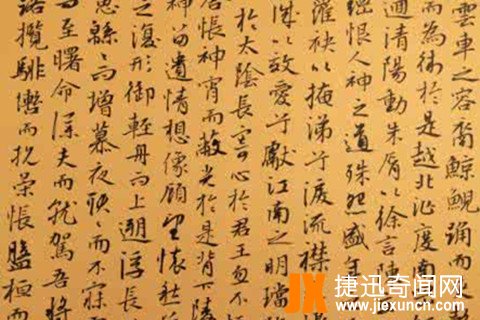 雲車之容裔鯨鯢踊而
而為衛於是越北沚度南
迴清陽動朱脣以徐言陳
綱恨人神之道殊怨盛年
羅袂以掩涕兮淚流襟
以效愛兮獻江南之明璫
於太陰長寄心於君王忽不
舍悵神宵而蔽光於是背下陵
神留遺情想像顧望懷愁
之復形御輕舟而上遡浮長
思緜緜而增慕夜耿耿而不寐
而至曙命僕夫而就駕吾將
路攬騑轡而抗策悵盤桓而
JX 捷迅奇闻网
www.jiexuncn.com